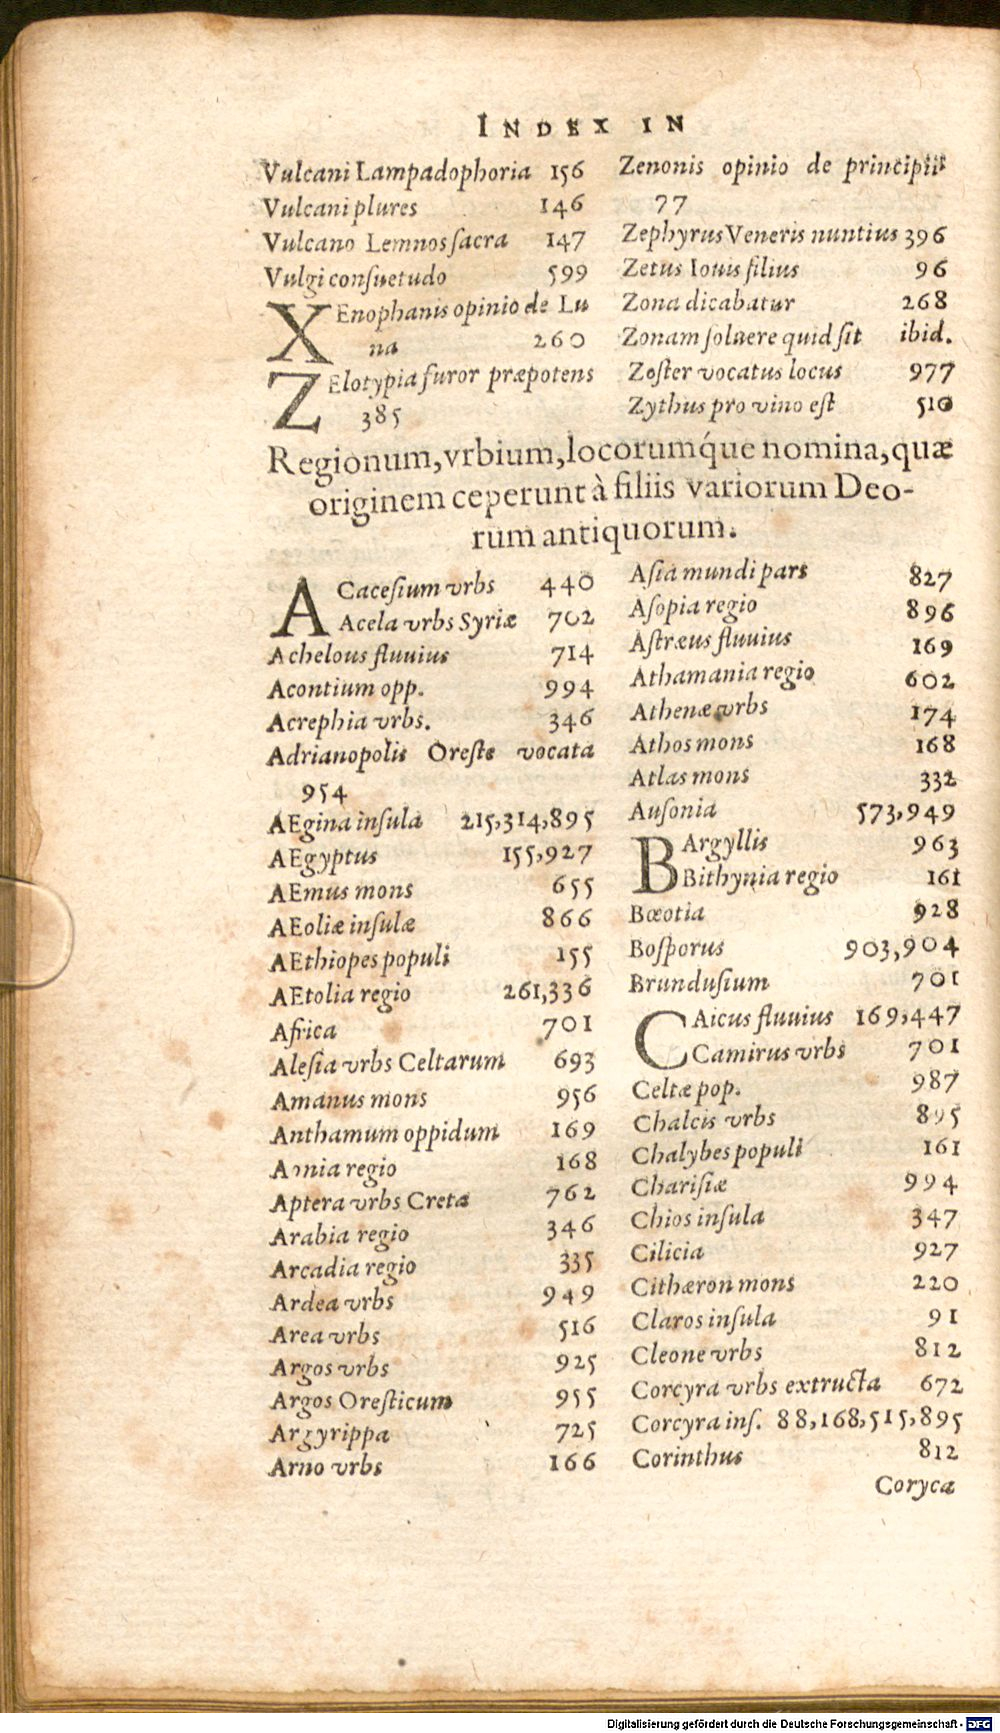 INDEX IN
Vulcani Lampadophoria 156
Vulcani plures 146
Vulcano Lemnos ſacra 147
Vulgi conſuetudo 599
XEnophanis opinio de Lu
na 260
ZElotypia furor præpotens
385
Zenonis opinio de principiis
77
Zephyrus Veneris nuntius 396
Zetus Iouis filius 96
Zona dicabatur 268
Zonam ſoluere quid ſit ibid.
Zoſter vocatus locus 977
Zythus pro vino eſt 510
Regionum, vrbium, locorumq́ue nomina, quæ
originem ceperunt à filiis variorum Deo-
rum antiquorum.
ACaceſium vrbs 440
Acela vrbs Syriæ 702
Achelous fluuius 714
Acontium opp. 994
Acrephia vrbs. 346
Adrianopolis Oreſte vocata
954
AEgina inſula 215,314,895
AEgyptus 155,927
AEmus mons 655
AEoliæ inſulæ 866
AEthiopes populi 155
AEtolia regio 261,336
Africa 701
Aleſia vrbs Celtarum 693
Amanus mons 956
Anthamum oppidum 169
regio 168
Aptera vrbs Cretæ 762
Arabia regio 346
Arcadia regio 335
Ardea vrbs 949
Area vrbs 516
Argos vrbs 925
Argos Oreſticum 955
Argyrippa 725
Arno vrbs 166
Aſia mundi pars 827
Aſopia regio 896
Aſtræus fluuius 169
Athamania regio 602
Athenæ vrbs 174
Athos mons 168
Atlas mons 332
Auſonia 573,949
BArgyllis 963
Bithynia regio 161
Bœotia 928
Boſporus 903,904
Brunduſium 701
CAicus fluuius 169,447
Camirus vrbs 701
Celtæ pop. 987
Chalcis vrbs 895
Chalybes populi 161
Chariſiæ 994
Chios inſula 347
Cilicia 927
Cithæron mons 220
Claros inſula 91
Cleone vrbs 812
Corcyra vrbs extructa 672
Corcyra inſ. 88,168,515,895
Corinthus 812
Corycæ
Digitalisierung gefördert durch die Deutsche Forschungsgemeinschaft - DFG